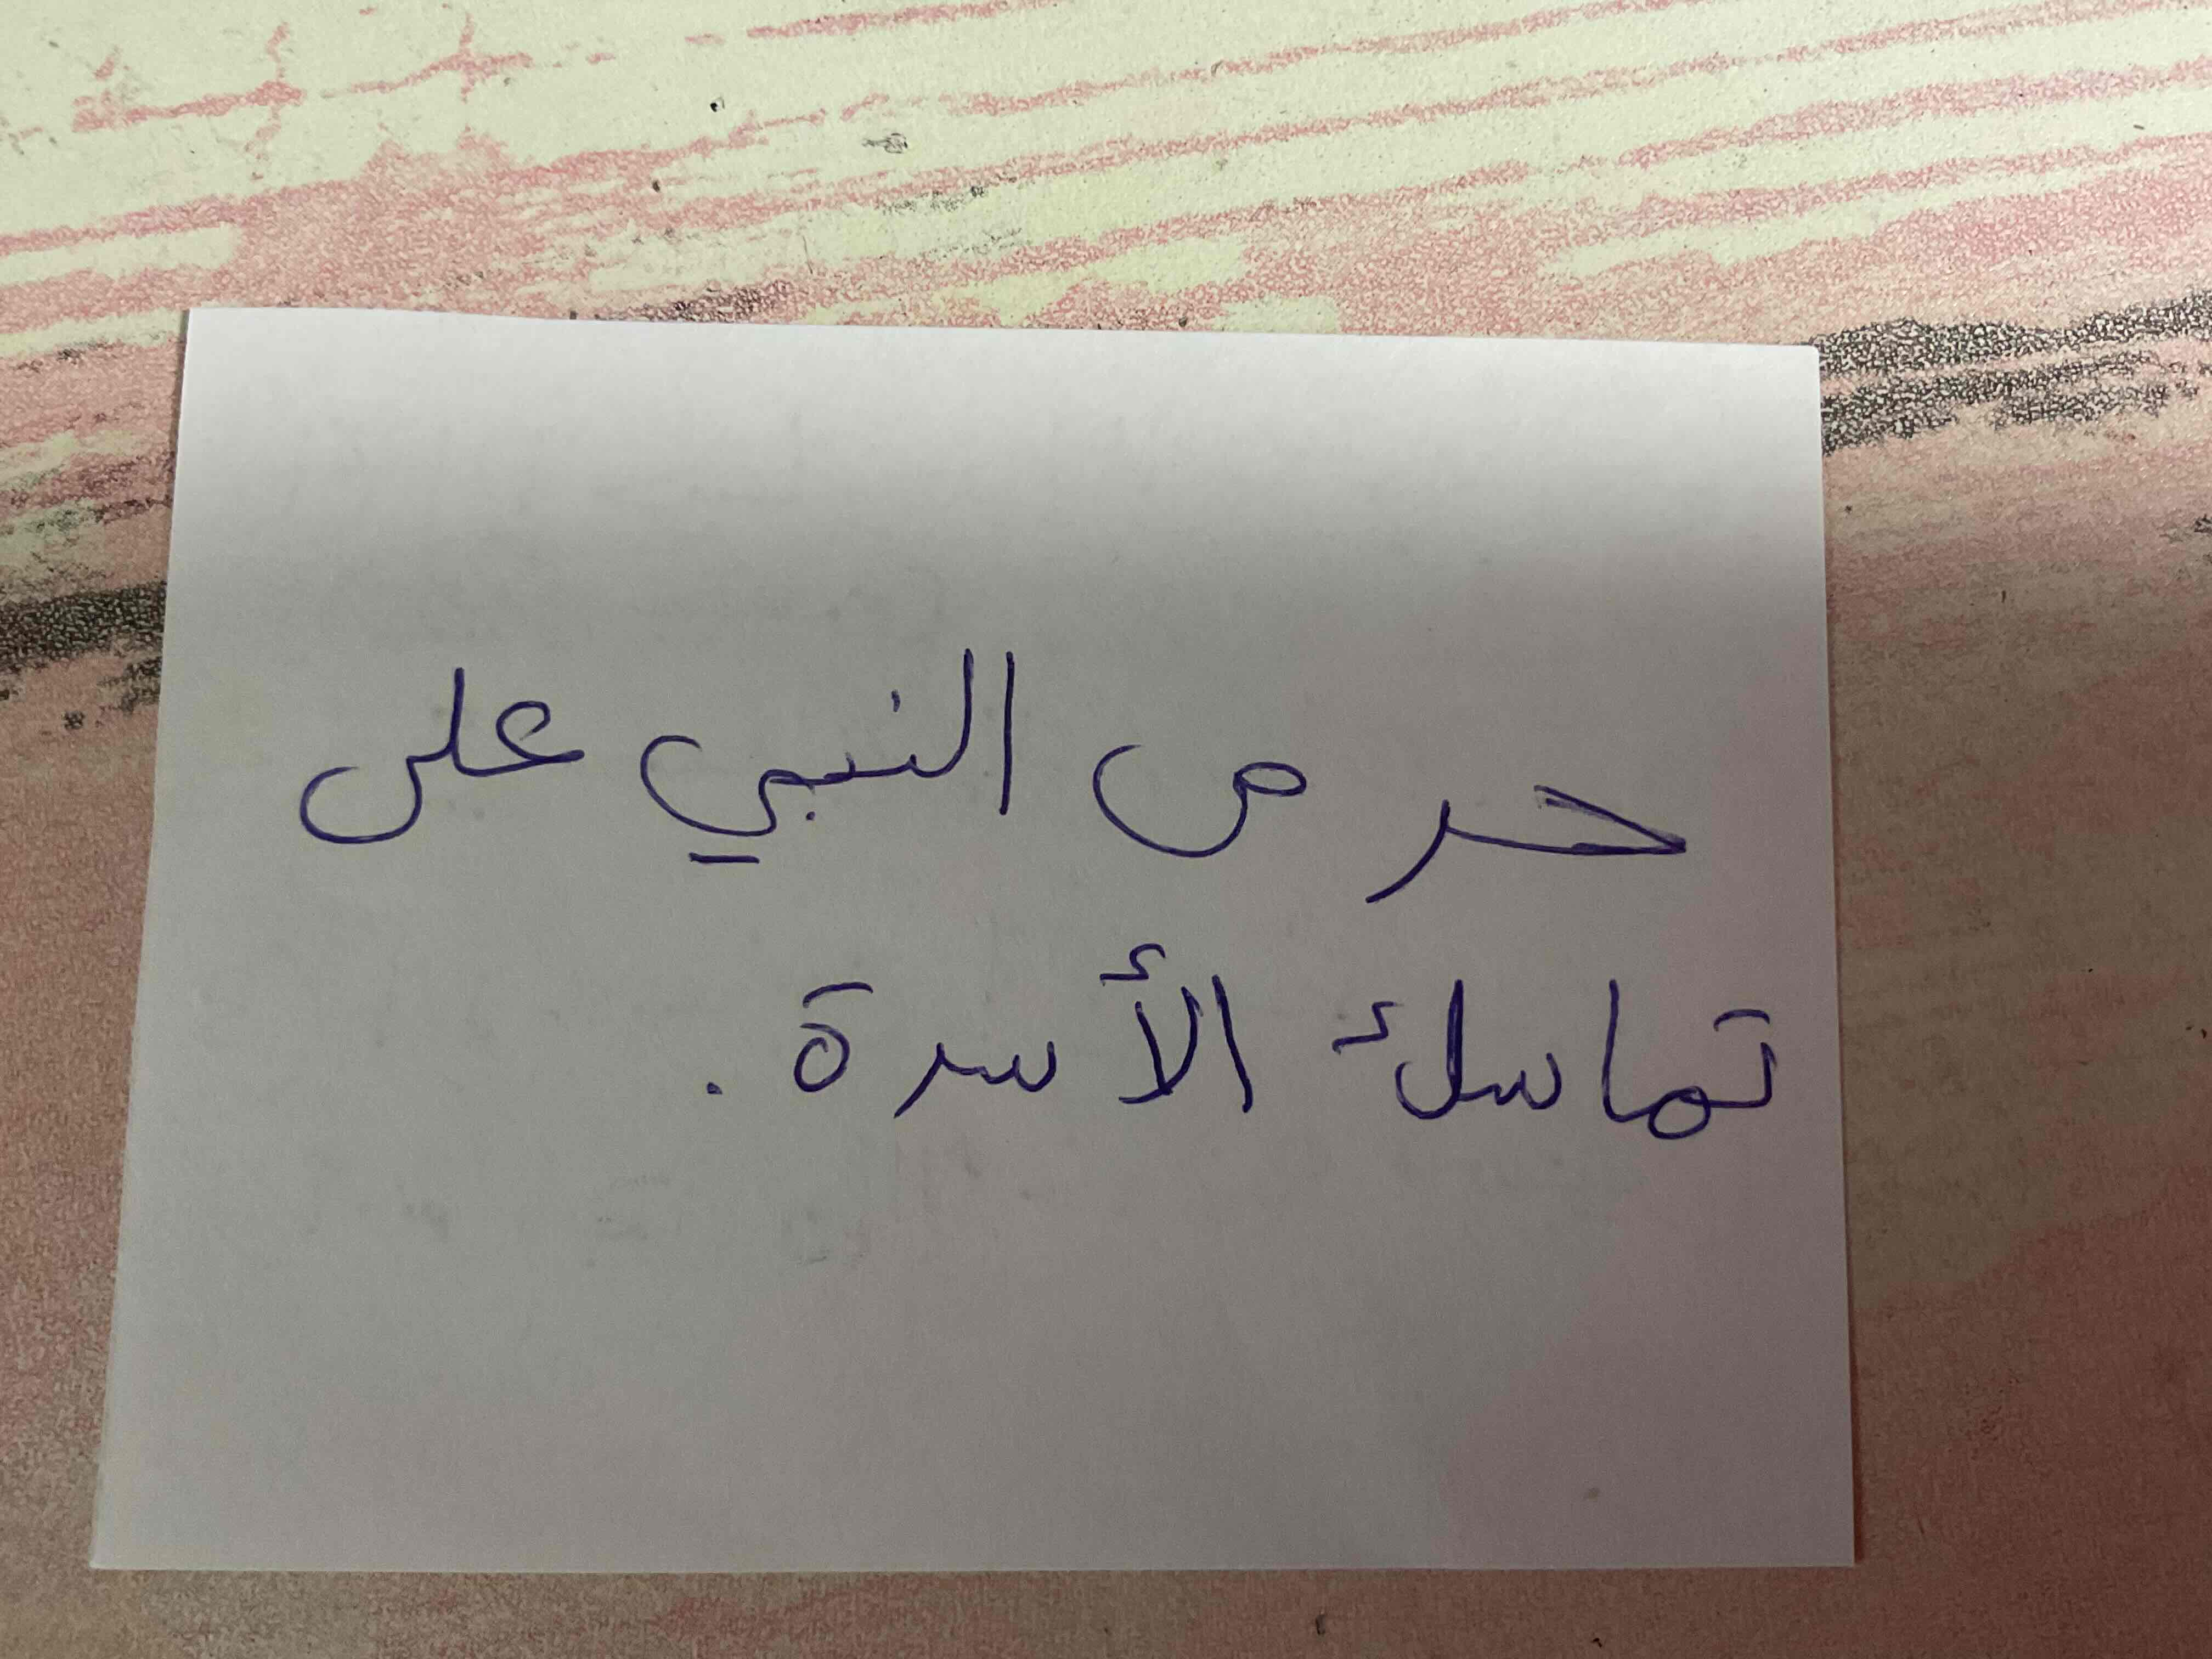 حرص النبي على
تماسك الأسرة .